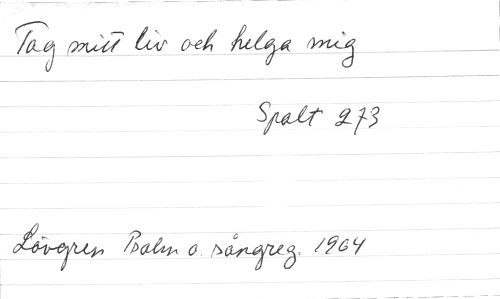 Tag mitt liv och helga mig
Spalt 273
Lövgren Psalm o. sångreg. 1964